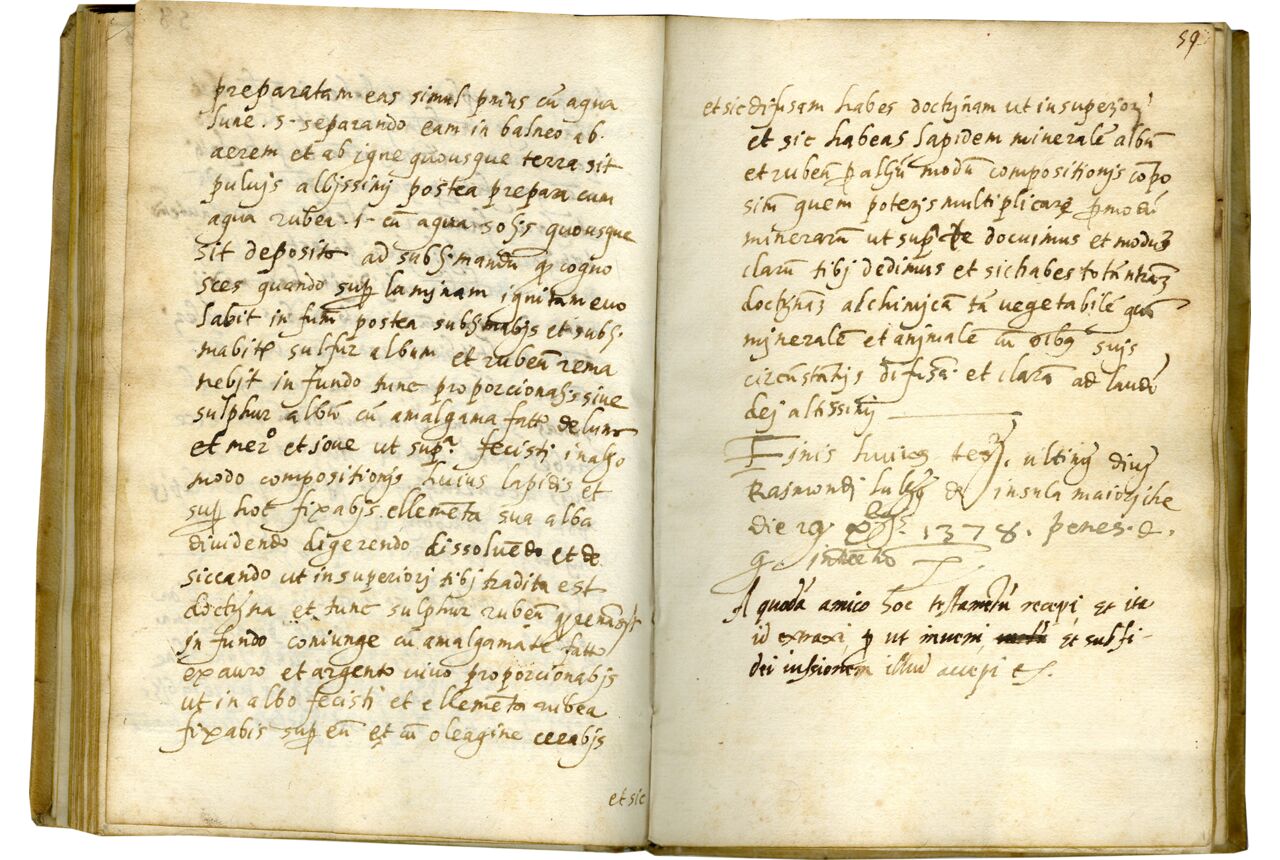 preparatam eas simul prius cū aqua
lune. s. separando eam in balneo ab
aerem et ab igne quousque terra sit
pulvis albissimj postea prepara cum
aqua rubea. s. cū aqua solis quousque
sit deposito ad sublimandū cogno
sces quando sup laminam ignitam evo
labit in fumū postea sublimabis et subli
mabit sulfur album et rubeū rema
nebit in fundo tunc proporcionalis sive
sulphur albū cū amalgama fatto de luna
et mer.º et jove ut sup.ª fecisti in alio
modo compositionis huius lapidis et
sup hoc fixabis ellemēta sua alba
dividendo digerendo dissolvēdo et de
siccando ut in superiorj tibj tradita est
doctrina et tunc sulphur rubeū
in fundo coniunge cū amalgamate fatto
ex auro et argento vivo proporcionabis
ut in albo fecisti et ellemēta rubea
fixabis sup eū et cū oleagine cerabis
et sic
59
et sic difusam habes doctrinam ut in superiorj
et sic habeas lapidem mineralē albū
et rubeū p aliū modū compositionis cōpo
sitū quem poteris multiplicare p modū
minerarū ut sup docuimus et modū
clarū tibj dedimus et sic habes totā nrāz
doctrināz alchimicā tā vegetabilē quā
mineralē et animale cū oībg suis
circūstantijs difusā et clarā ad laudē
dej altissimj
Finis huius ultimj divj
Raimondj lullij de insula maioriche
die 1378. penes. d.
g.
A quodā amico hoc testamētū recepi, et ita
id extraxi, ut inveni, et sub fi-
dei iussionem illud accepi